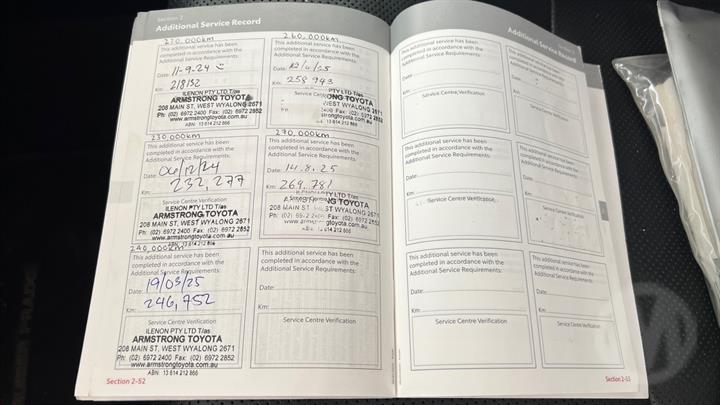 Section 2
Additional Service Record
220,000km
This additional service has been
completed in accordance with the
Additional Service Requirements:
Date: 11-9-24
218152
ILENON PTY LTD T/as
ARMSTRONG TOYOTA
208 MAIN ST, WEST WYALONG 2671
Ph: (02) 6972 2400 Fax: (02) 6972 2852
www.armstrongtoyota.com.au
ABN: 13 614 212 866
230,000km
This additional service has been
completed in accordance with the
Additional Service Requirements:
Date: 06/12/24
Km: 232,277
Service Centre Verification
ILENON PTY LTD T/as
ARMSTRONG TOYOTA
208 MAIN ST, WEST WYALONG 2671
Ph: (02) 6972 2400 Fax: (02) 6972 2852
www.armstrongtoyota.com.au
ABN: 13 614 212 866
240,000km
This additional service has been
completed in accordance with the
Additional Service Requirements:
Date: 19/03/25
Km: 246,752
Service Centre Verification
ILENON PTY LTD T/as
ARMSTRONG TOYOTA
208 MAIN ST, WEST WYALONG 2671
Ph: (02) 6972 2400 Fax: (02) 6972 2852
www.armstrongtoyota.com.au
ABN: 13 614 212 866
Section 2-52
260,000km
This additional service has been
completed in accordance with the
Additional Service Requirements:
Date:
Km: 258943
Service Centre
PTY LTD T/as
ONG TOYOTA
WEST WYALONG 2671
Fax: (02) 6972 2852
strongtoyota.com.au
13 614 212 866
This additional service has been
completed in accordance with the
Additional Service Requirements:
Date: 14.8.25
Km: 269,781
PTY LTD T/as
TOYOTA
208 MAIN ST WYALONG 2671
Fax: (02) 6972 2852
toyota.com.au
614 212 866
This additional service has been
completed in accordance with the
Additional Service Requirements:
Date:
Km:
Service Centre Verification
Additional Service Record
This additional service has been
completed in accordance with the
Additional Service Requirements:
Date:
Km:
Service Centre Verification
This additional service has been
completed in accordance with the
Additional Service Requirements:
Date:
Km:
Service Centre Verification
This additional service has been
completed in accordance with the
Additional Service Requirements:
Date:
Km:
Service Centre Verification
This additional service has been
completed in accordance with the
Additional Service Requirements:
Date:
Km:
Service Centre Verification
This additional service has been
completed in accordance with the
Additional Service Requirements:
Date:
Km:
Service Centre Verification
This additional service has been
completed in accordance with the
Additional Service Requirements:
Date:
Km:
Service Centre Verification
Section 2-53